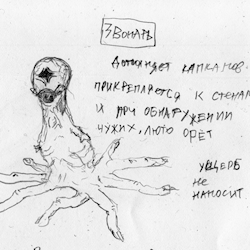 Звонарь
капканов.
прикрепляется к стенам
и при обнаружении
чужих, люто орёт
ущерб
не
наносит.